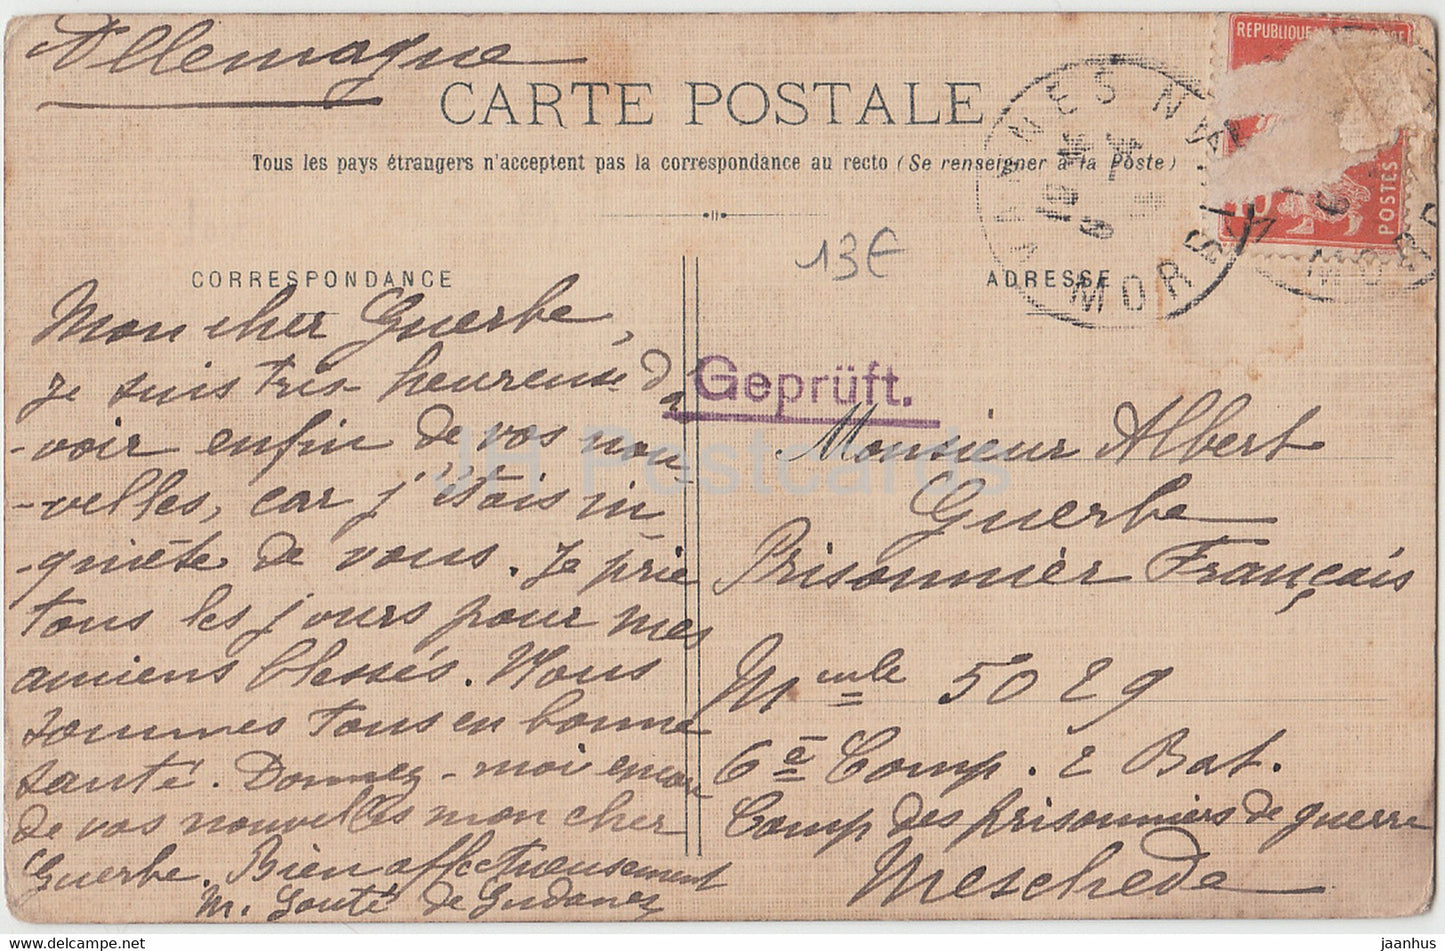 Allemagne
CARTE POSTALE
Tous les pays étrangers n'acceptent pas la correspondance au recto (Se renseigner à la Poste)
RÉPUBLIQUE
POSTES
10
VANNES
MORBIHAN
13€
CORRESPONDANCE
ADRESSE
Mon cher Guerbe,
je suis très heureuse d'a
-voir enfin de vos nou
-velles, car j'étais in
-quiète de vous. Je prie
tous les jours pour mes
anciens blessés. Nous
sommes tous en bonne
santé. Donnez-moi encore
de vos nouvelles mon cher
Guerbe. Bien affectueusement
M. Gouté de
Geprüft.
Monsieur Albert
Guerbe
Prisonnier Français
Mcule 5029
6e Comp. 2 Bat.
Camp des prisonniers de guerre
Meschede
JH Postcards
https://www.bonanza.com/booths/jaanhus
jaanhus